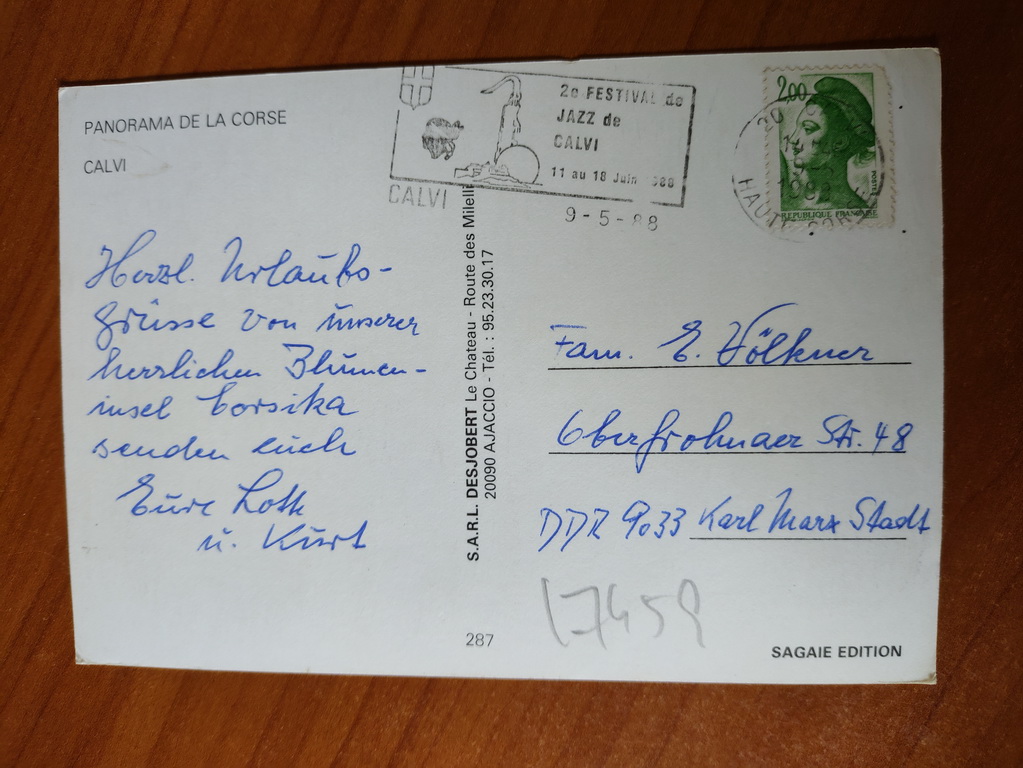 PANORAMA DE LA CORSE
CALVI
2e FESTIVAL de
JAZZ de
CALVI
11 au 18 Juin 1988
CALVI
9-5-88
2,00
POSTES
REPUBLIQUE FRANÇAISE
HAUTE CORSE
Herzl. Urlaubs-
grüsse von unserer
herrlichen Blumen-
insel Corsika
senden euch
Eure Loth
u. Kurt
S.A.R.L. DESJOBERT Le Chateau - Route des Milelli
20090 AJACCIO - Tél. : 95.23.30.17
287
Fam. E. Völkner
Oberfrohnaer Str. 48
DDR 9033 Karl Marx Stadt
17459
SAGAIE EDITION